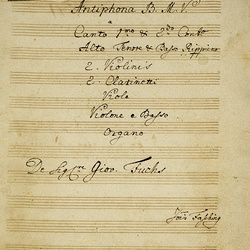 Antiphona B. M. V.
a
Canto 1mo & 2do Conto
Alto Tenore & Basso Rippieno
2. Violinis
2. Clarinetti
Viola
Violone e Basso
Organo
De Sigre Giov. Fuchs